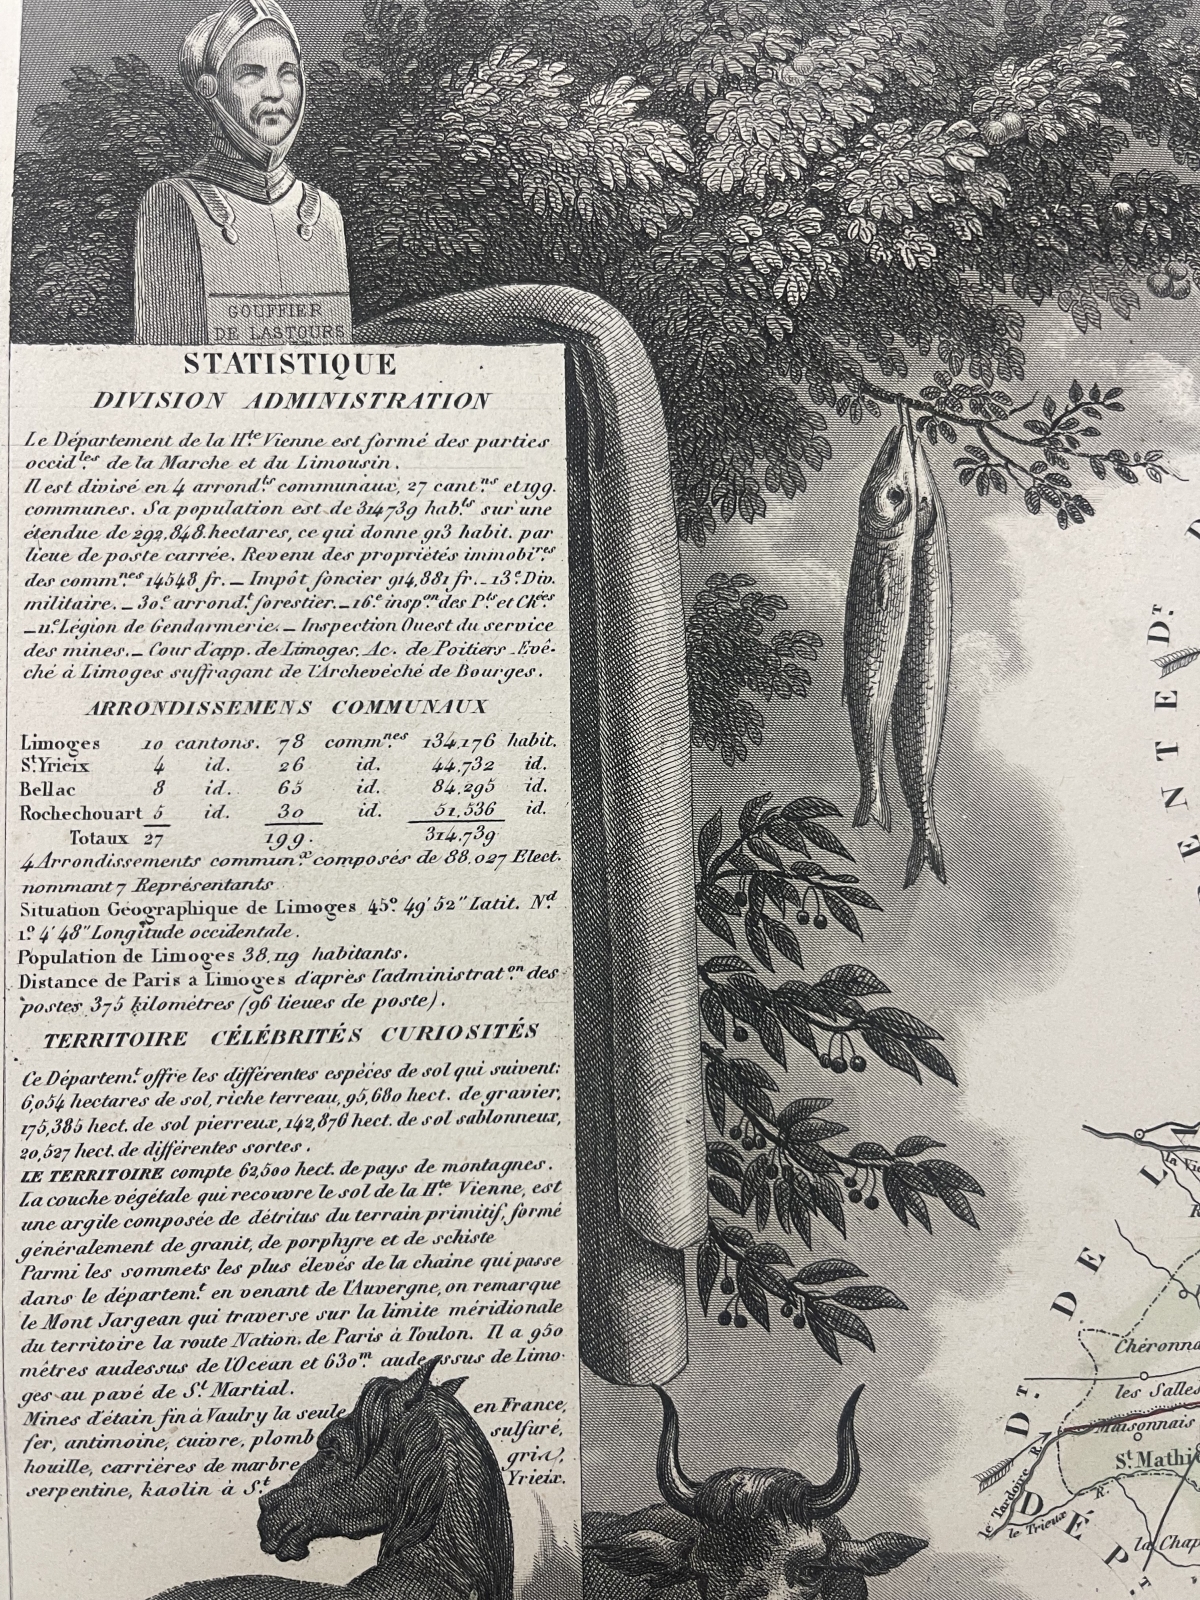 GOUFFIER
DE LASTOURS
STATISTIQUE
DIVISION ADMINISTRATION
Le Département de la Hte Vienne est formé des parties
occidles de la Marche et du Limousin.
Il est divisé en 4 arrondts communaux, 27 cantns et 199.
communes. Sa population est de 314739 habts sur une
étendue de 292,848 hectares, ce qui donne 913 habit. par
lieue de poste carrée. Revenu des propriétés immobires
des commnes 14548 fr. _ Impôt foncier 914,881 fr. _ 13e Div.
militaire. _ 30e arrondt forestier. _ 16e inspon des Pts et Chées
_ 11e Légion de Gendarmerie. _ Inspection Ouest du service
des mines. _ Cour d'app. de Limoges. Ac. de Poitiers. Evê-
ché à Limoges suffragant de l'Archevêché de Bourges.
ARRONDISSEMENS COMMUNAUX
Limoges 10 cantons. 78 commnes 134,176 habit.
St Yrieix 4 id. 26 id. 44,732 id.
Bellac 8 id. 65 id. 84,295 id.
Rochechouart 5 id. 30 id. 51,536 id.
Totaux 27 199. 314.739
4 Arrondissements communx composés de 88,027 Elect.
nommant 7 Représentants
Situation Géographique de Limoges 45° 49' 52" Latit. Nd
1° 4' 48" Longitude occidentale.
Population de Limoges 38,119 habitants.
Distance de Paris a Limoges d'après l'administraton des
postes 375 kilomètres (96 lieues de poste).
TERRITOIRE CÉLÉBRITÉS CURIOSITÉS
Ce Départemt offre les différentes espèces de sol qui suivent:
6,054 hectares de sol, riche terreau, 95,680 hect. de gravier,
175,385 hect. de sol pierreux, 142,876 hect. de sol sablonneux,
20,527 hect. de différentes sortes.
LE TERRITOIRE compte 62,500 hect. de pays de montagnes.
La couche végétale qui recouvre le sol de la Hte Vienne, est
une argile composée de détritus du terrain primitif, formé
généralement de granit, de porphyre et de schiste
Parmi les sommets les plus élevés de la chaine qui passe
dans le départemt en venant de l'Auvergne, on remarque
le Mont Jargean qui traverse sur la limite méridionale
du territoire la route Nation. de Paris à Toulon. Il a 950
mètres audessus de l'Océan et 630m audessus de Limo-
ges au pavé de St Martial.
Mines d'étain fin à Vaulry la seule en France,
fer, antimoine, cuivre, plomb sulfuré,
houille, carrières de marbre gris,
serpentine, kaolin à St Yrieix.
ENTE Dt
L
DE
Dt
Chéronna
les Salles
Maisonnais
St Mathi
le Tardoire R.
le Trieux R.
la Chap
DÉPt